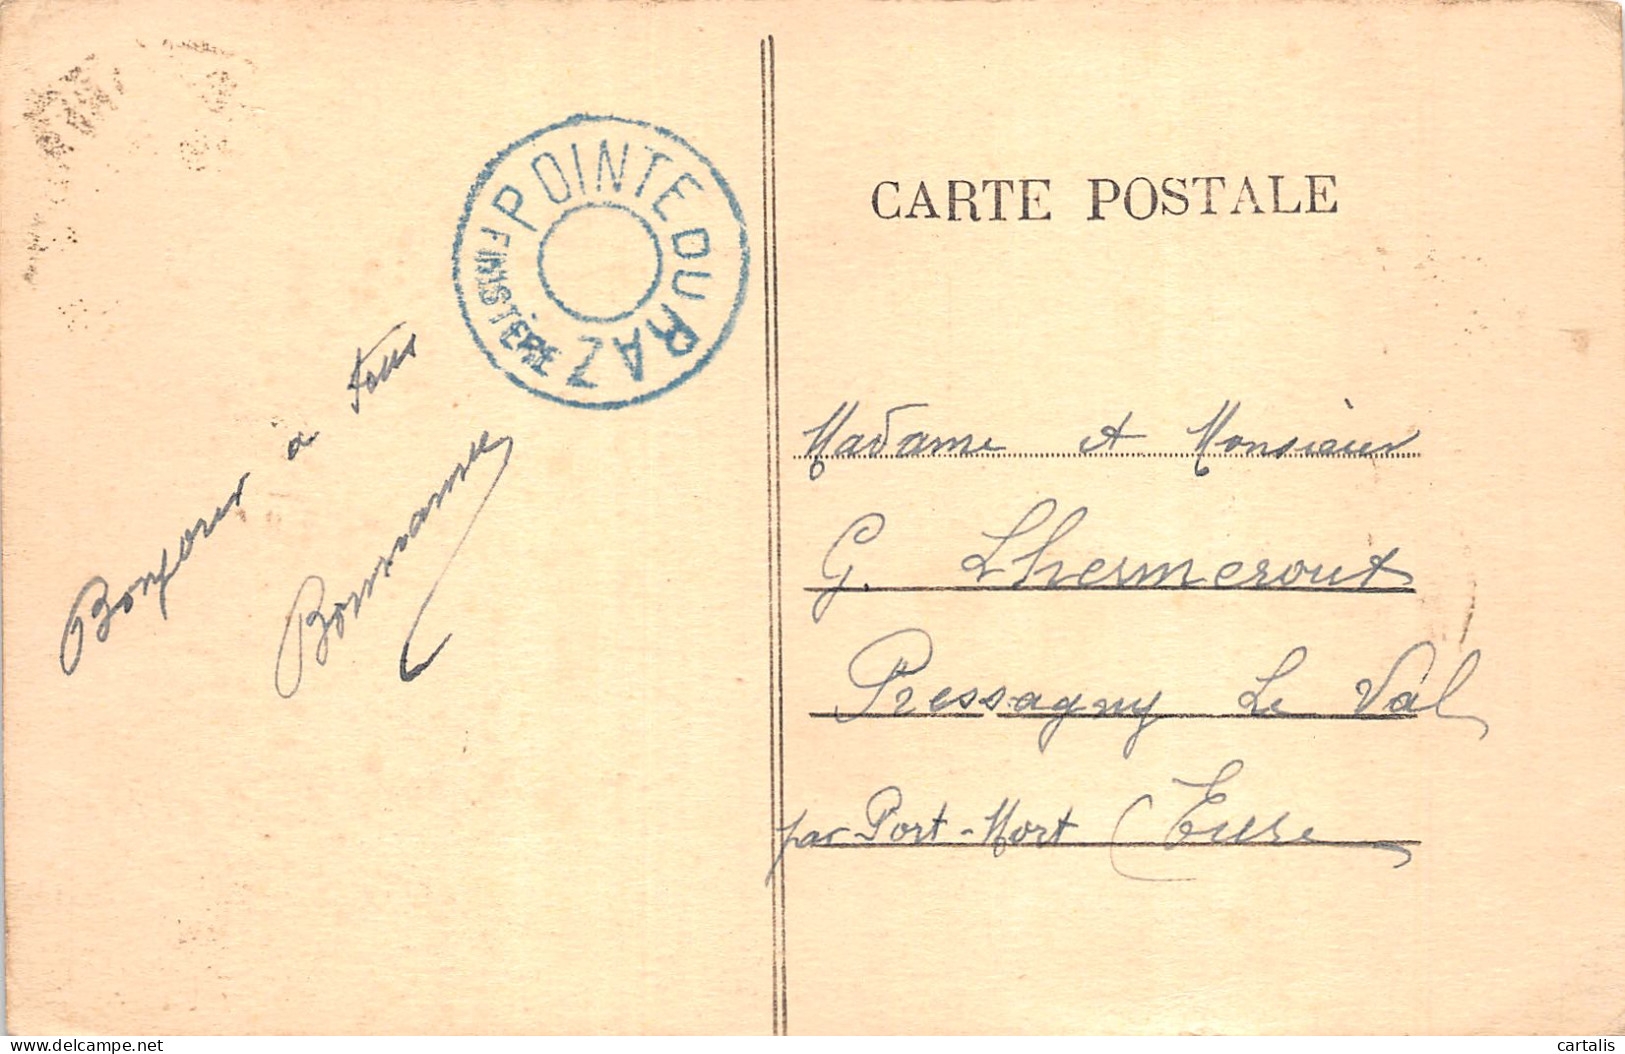 Bonjour à tous
POINTE DU RAZ
FINISTÈRE
CARTE POSTALE
Madame et Monsieur
G. Lhermerout
Pressagny Le Val
par Port-Mort (Eure
www.delcampe.net
cartalis